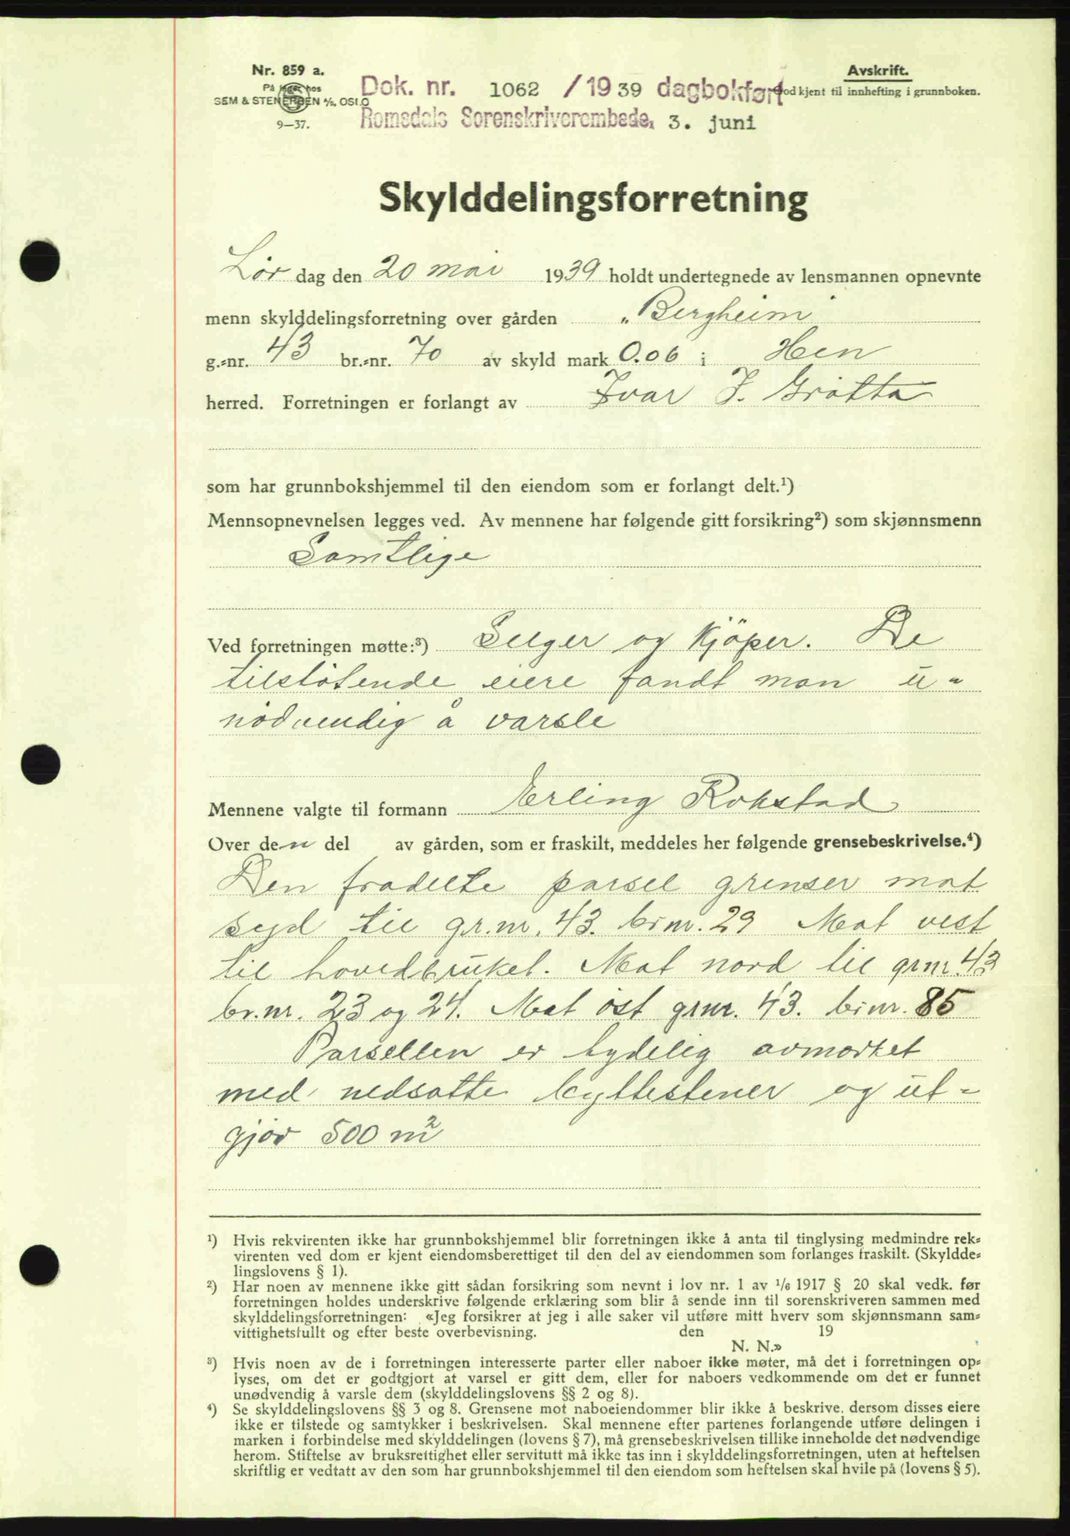 Nr. 859 a.
På lager hos
SEM & STENERSEN A/S, OSLO
9—37.
Dok. nr. 1062 /19 39 dagbokført
Romsdals Sorenskriverembede, 3. juni
Avskrift.
od kjent til innhefting i grunnboken.
Skylddelingsforretning
Lør dag den 20 mai 1939 holdt undertegnede av lensmannen opnevnte
menn skylddelingsforretning over gården „Bergheim"
g.-nr. 43 br.-nr. 70 av skyld mark 0.06 i Hen
herred. Forretningen er forlangt av Ivar J. Grøtta
som har grunnbokshjemmel til den eiendom som er forlangt delt.¹)
Mennsopnevnelsen legges ved. Av mennene har følgende gitt forsikring²) som skjønnsmenn
Samtlige
Ved forretningen møtte:³) Selger og kjöper. De
tilstøtende eiere fandt man u-
nödvendig å varsle
Mennene valgte til formann Erling Rokstad
Over den del av gården, som er fraskilt, meddeles her følgende grensebeskrivelse.⁴)
Den fradelte parsel grenser mot
syd til gr.nr. 43. br.nr. 29 Mot vest
til hovedbruket. Mot nord til gr.nr. 43
br.nr. 23 og 24. Mot øst gr.nr. 43. br.nr. 85
Parsellen er tydelig avmerket
med nedsatte byttestener og ut-
gjør 500 m²
¹) Hvis rekvirenten ikke har grunnbokshjemmel blir forretningen ikke å anta til tinglysing medmindre rek-
virenten ved dom er kjent eiendomsberettiget til den del av eiendommen som forlanges fraskilt. (Skyldde-
lingslovens § 1).
²) Har noen av mennene ikke gitt sådan forsikring som nevnt i lov nr. 1 av ¹/₆ 1917 § 20 skal vedk. før
forretningen holdes underskrive følgende erklæring som blir å sende inn til sorenskriveren sammen med
skylddelingsforretningen: «Jeg forsikrer at jeg i alle saker vil utføre mitt hverv som skjønnsmann sam-
vittighetsfullt og efter beste overbevisning. den 19
N. N.»
³) Hvis noen av de i forretningen interesserte parter eller naboer ikke møter, må det i forretningen op-
lyses, om det er godtgjort at varsel er gitt dem, eller for naboers vedkommende om det er funnet
unødvendig å varsle dem (skylddelingslovens §§ 2 og 8).
⁴) Se skylddelingslovens §§ 3 og 8. Grensene mot naboeiendommer blir ikke å beskrive. dersom disses eiere
ikke er tilstede og samtykker i beskrivelsen. Skal mennene efter partenes forlangende utføre delingen i
marken i forbindelse med skylddelingen (lovens § 7), må grensebeskrivelsen tillike inneholde det nødvendige
herom. Stiftelse av bruksrettighet eller servitutt må ikke tas inn i skylddelingsforretningen, uten at heftelsen
skriftlig er vedtatt av den som har grunnbokshjemmel til den eiendom som heftelsen skal hvile på (lovens § 5).